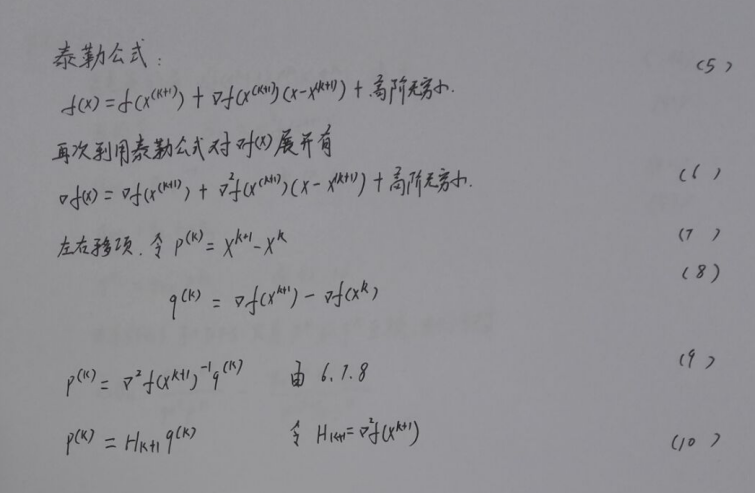 泰勒公式: (5)
f(x)=f(x^(k+1)) + ∇f(x^(k+1))(x-x^(k+1)) + 高阶无穷小.
再次利用泰勒公式对∇f(x)展开有
∇f(x) = ∇f(x^(k+1)) + ∇²f(x^(k+1))(x-x^(k+1)) + 高阶无穷小. (6)
左右移项. 令 p^(k) = x^k+1 - x^k (7)
q^(k) = ∇f(x^k+1) - ∇f(x^k) (8)
p^(k) = ∇²f(x^k+1)^-1 q^(k) 由 6.7.8 (9)
p^(k) = H_k+1 q^(k) 令 H_k+1 = ∇²f(x^k+1) (10)